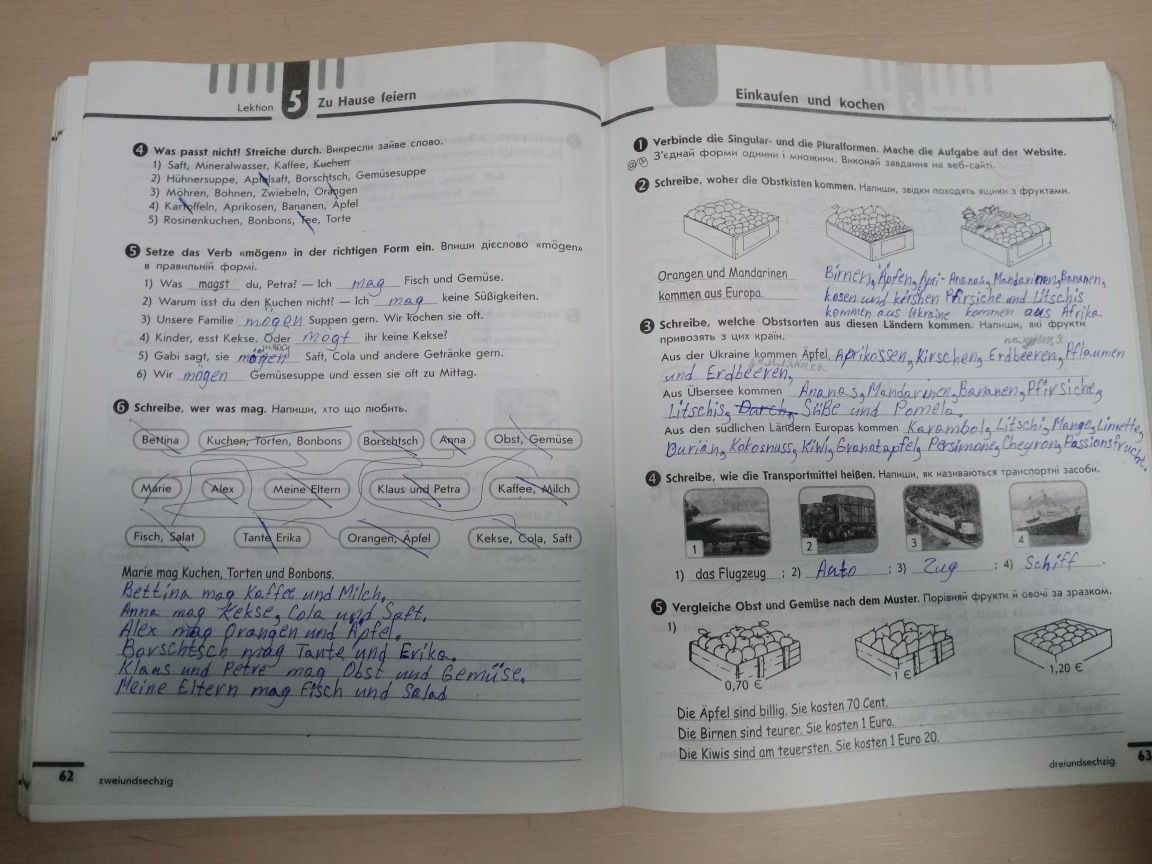 Lektion 5 Zu Hause feiern
4 Was passt nicht? Streiche durch. Викресли зайве слово.
1) Saft, Mineralwasser, Kaffee, Kuchen
2) Hühnersuppe, Apfelsaft, Borschtsch, Gemüsesuppe
3) Möhren, Bohnen, Zwiebeln, Orangen
4) Kartoffeln, Aprikosen, Bananen, Äpfel
5) Rosinenkuchen, Bonbons, Tee, Torte
5 Setze das Verb «mögen» in der richtigen Form ein. Впиши дієслово «mögen»
в правильній формі.
1) Was magst du, Petra? — Ich mag Fisch und Gemüse.
2) Warum isst du den Kuchen nicht? — Ich mag keine Süßigkeiten.
3) Unsere Familie mögen Suppen gern. Wir kochen sie oft.
4) Kinder, esst Kekse. Oder mogt ihr keine Kekse?
5) Gabi sagt, sie mögen Saft, Cola und andere Getränke gern.
6) Wir mögen Gemüsesuppe und essen sie oft zu Mittag.
6 Schreibe, wer was mag. Напиши, хто що любить.
Bettina Kuchen, Torten, Bonbons Borschtsch Anna Obst, Gemüse
Marie Alex Meine Eltern Klaus und Petra Kaffee, Milch
Fisch, Salat Tante Erika Orangen, Äpfel Kekse, Cola, Saft
Marie mag Kuchen, Torten und Bonbons.
Bettina mag Kaffee und Milch.
Anna mag Kekse, Cola und Saft.
Alex mag Orangen und Äpfel.
Borschtsch mag Tante und Erika.
Klaus und Petre mag Obst und Gemüse.
Meine Eltern mag Fisch und Salad
62 zweiundsechzig
Einkaufen und kochen
1 Verbinde die Singular- und die Pluralformen. Mache die Aufgabe auf der Website.
З'єднай форми однини і множини. Виконай завдання на веб-сайті.
2 Schreibe, woher die Obstkisten kommen. Напиши, звідки походять ящики з фруктами.
Orangen und Mandarinen
kommen aus Europa.
Birnen, Äpfen, Apri-
kosen und kirshen
kommen aus Ukraine
Ananas, Mandarinen, Bananen,
Pfirsiche und Litschis
kommen aus Afrika
3 Schreibe, welche Obstsorten aus diesen Ländern kommen. Напиши, які фрукти
привозять з цих країн.
Aus der Ukraine kommen Äpfel, Aprikossen, Kirschen, Erdbeeren, Pflaumen
und Erdbeeren,
Aus Übersee kommen Ananas, Mandarinen, Bananen, Pfirsiche,
Litschis, Süße und Pomela.
Aus den südlichen Ländern Europas kommen Karambol, Litschi, Mango, Limette,
Durian, Kokosnuss, Kiwi, Granatapfel, Persimone, Cheyron, Passionsfrucht.
4 Schreibe, wie die Transportmittel heißen. Напиши, як називаються транспортні засоби.
1 2 3 4
1) das Flugzeug ; 2) Auto ; 3) Zug ; 4) Schiff .
5 Vergleiche Obst und Gemüse nach dem Muster. Порівняй фрукти й овочі за зразком.
1)
0,70 € 1 € 1,20 €
Die Äpfel sind billig. Sie kosten 70 Cent.
Die Birnen sind teurer. Sie kosten 1 Euro.
Die Kiwis sind am teuersten. Sie kosten 1 Euro 20.
dreiundsechzig 63